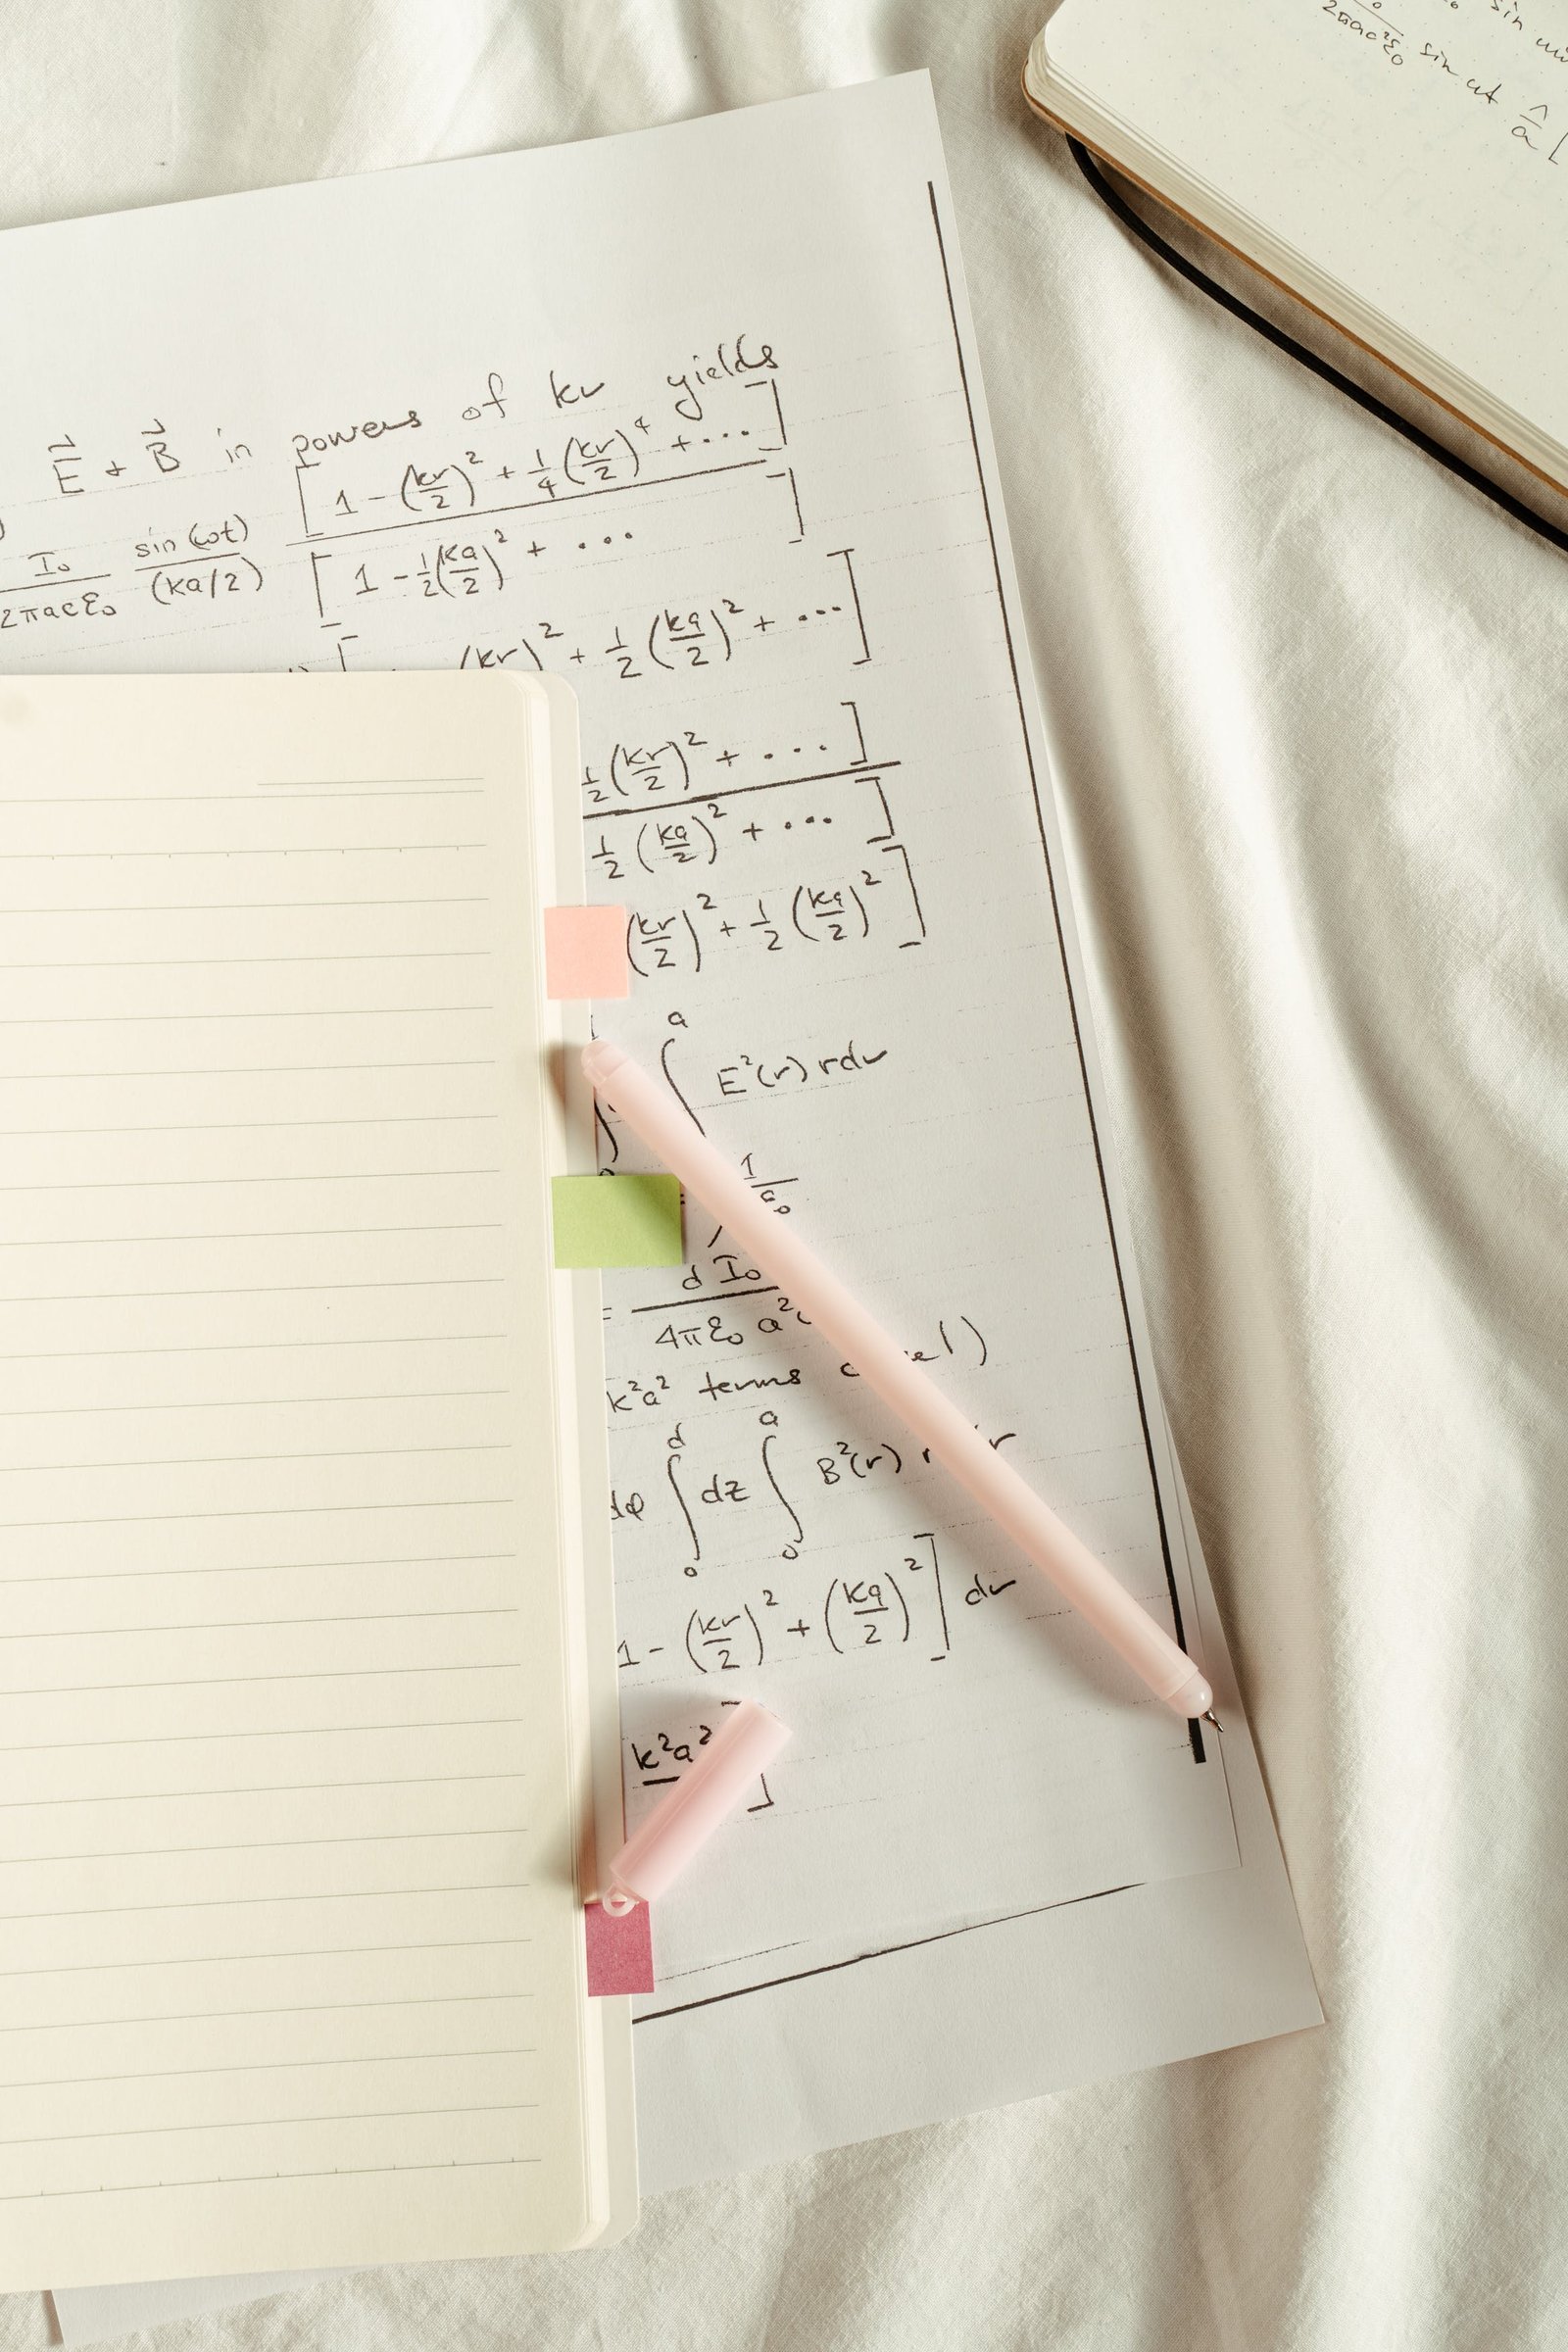 E⃗ + B⃗ in powers of kr yields
I₀/(2πacε₀) sin(ωt)/(ka/2) [1 - (kr/2)² + 1/4(kr/2)⁴ + ...] / [1 - 1/2(ka/2)² + ...]
(kr)² + 1/2(ka/2)² + ...]
1/2(kr/2)² + ...]
1/2(ka/2)² + ...]
(kr/2)² + 1/2(ka/2)²]
∫₀ᵃ E²(r) rdr
= dI₀/(4πε₀a²
k²a² terms
dφ ∫₀ᵈ dz ∫₀ᵃ B²(r)
1 - (kr/2)² + (ka/2)²] dr
k²a²]
sin
2πac²ε₀ sin ωt â [